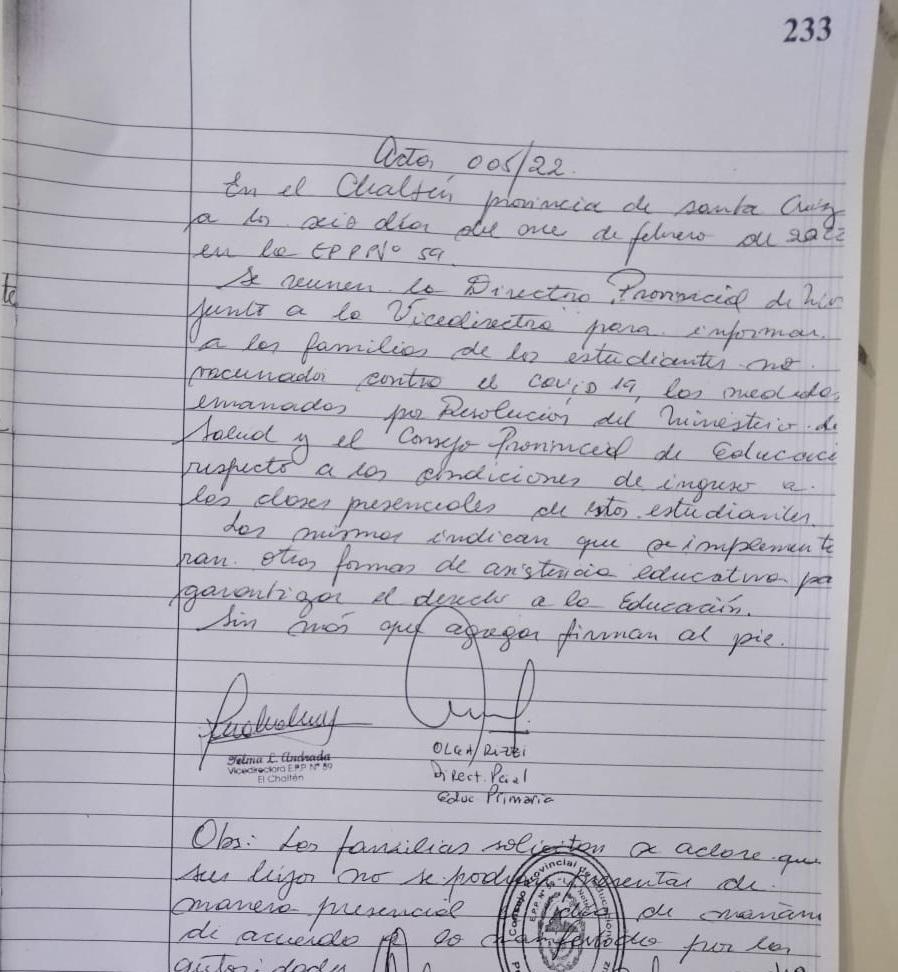 233
Acta 005/22.
En el Chaltén provincia de santa Cruz
a los seis días del mes de febrero de 2022
en la EPP Nº 59.
Se reunen la Directora Provincial de Niv
junto a la Vicedirectora para informar
a las familias de los estudiantes no
vacunados contra el covid 19, las medidas
emanadas por Resolución del Ministerio de
Salud y el Consejo Provincial de Educaci
respecto a las condiciones de ingreso a
las clases presenciales de estos estudiantes.
Las mismas indican que se implementa
ran otras formas de asistencia educativa pa
garantizar el derecho a la Educación.
Sin más que agregar firman al pie.
Telma L. Andrada
Vicedirectora E.P.P. Nº 59
El Chaltén
OLGA RIZZI
Direct. Pcial
Educ Primaria
Obs: Las familias solicitan se aclare que
sus hijos no se podrán presentar de
manera presencial de mañana
de acuerdo a lo manifestado por las
autoridades
Consejo Provincial de Educación
E.P.P. Nº 59
te